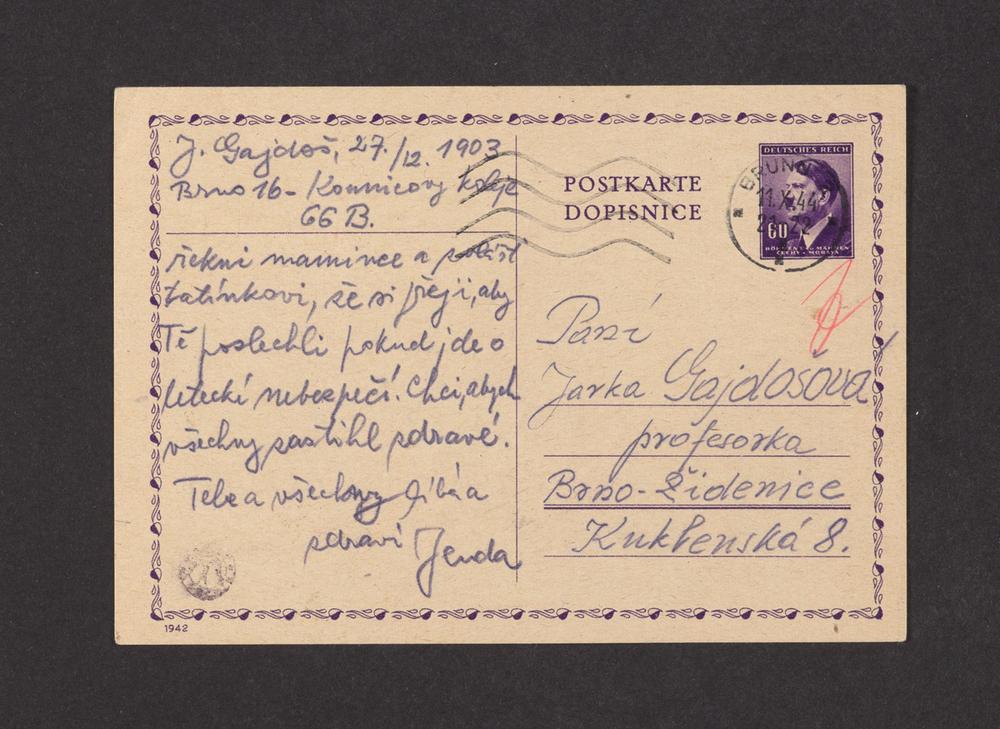 J. Gajdoš, 27./12. 1903
Brno 16 - Kounicovy koleje
66 B.
řekni mamince a zvlášť
tatínkovi, že si přeji, aby
Tě poslechli pokud jde o
letecké nebezpečí. Chci, abych
všechny zastihl zdravé.
Tebe a všechny líbá a
zdraví Jenda
1942
POSTKARTE
DOPISNICE
DEUTSCHES REICH
60
BÖHMEN U. MÄHREN
ČECHY A MORAVA
BRÜNN
11.X.44
21-22
Paní
Jarka Gajdošová
profesorka
Brno-Židenice
Kuklenská 8.